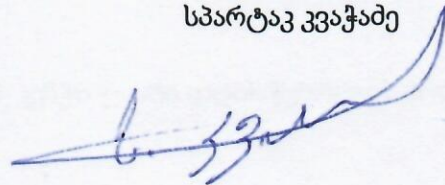 სპარტაკ კვაჭაძე